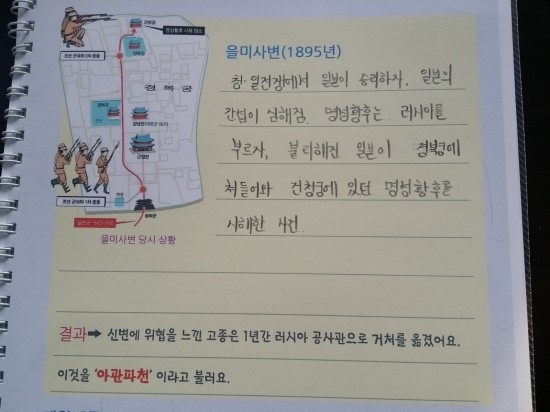 건청궁
명성황후 시해 장소
조선 군대와 2차 충돌
경복궁
근정전
조선 군대와 1차 충돌
광화문
을미사변 당시 상황
을미사변(1895년)
청·일전쟁에서 일본이 승리하자, 일본의
간섭이 심해짐. 명성황후는 러시아를
부르자, 불리해진 일본이 경복궁에
쳐들어와 건청궁에 있던 명성황후를
시해한 사건.
결과➡ 신변에 위협을 느낀 고종은 1년간 러시아 공사관으로 거처를 옮겼어요.
이것을 '아관파천' 이라고 불러요.